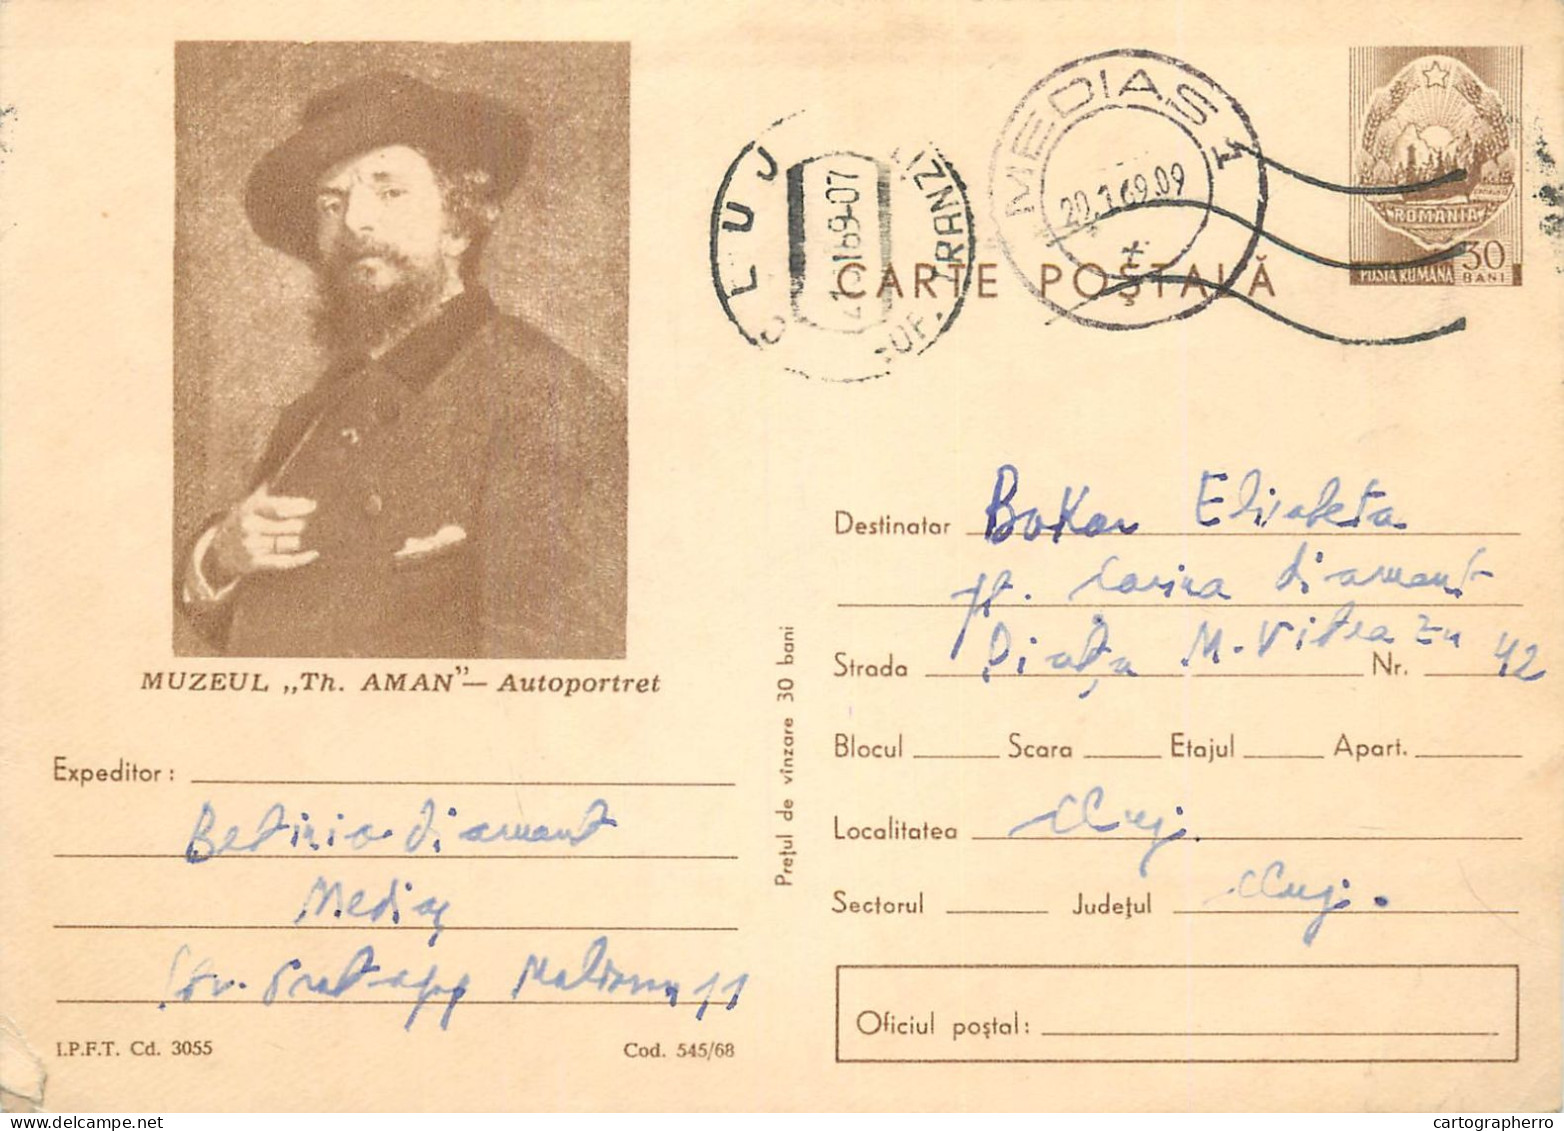 MUZEUL „Th. AMAN”— Autoportret
Expeditor:
Betinia diamant
Mediaş
Moldovei 11
I.P.F.T. Cd. 3055
Cod. 545/68
Preţul de vînzare 30 bani
CLUJ
TRANZI
MEDIAS 1
CARTE POŞTALĂ
ROMANIA
POSTA ROMANA
30
BANI
Destinatar Elisabeta
pt. Carina diamant
Strada Piaţa M. Viteazu Nr. 42
Blocul Scara Etajul Apart.
Localitatea Cluj.
Sectorul Judeţul Cluj.
Oficiul poştal:
cartographerro